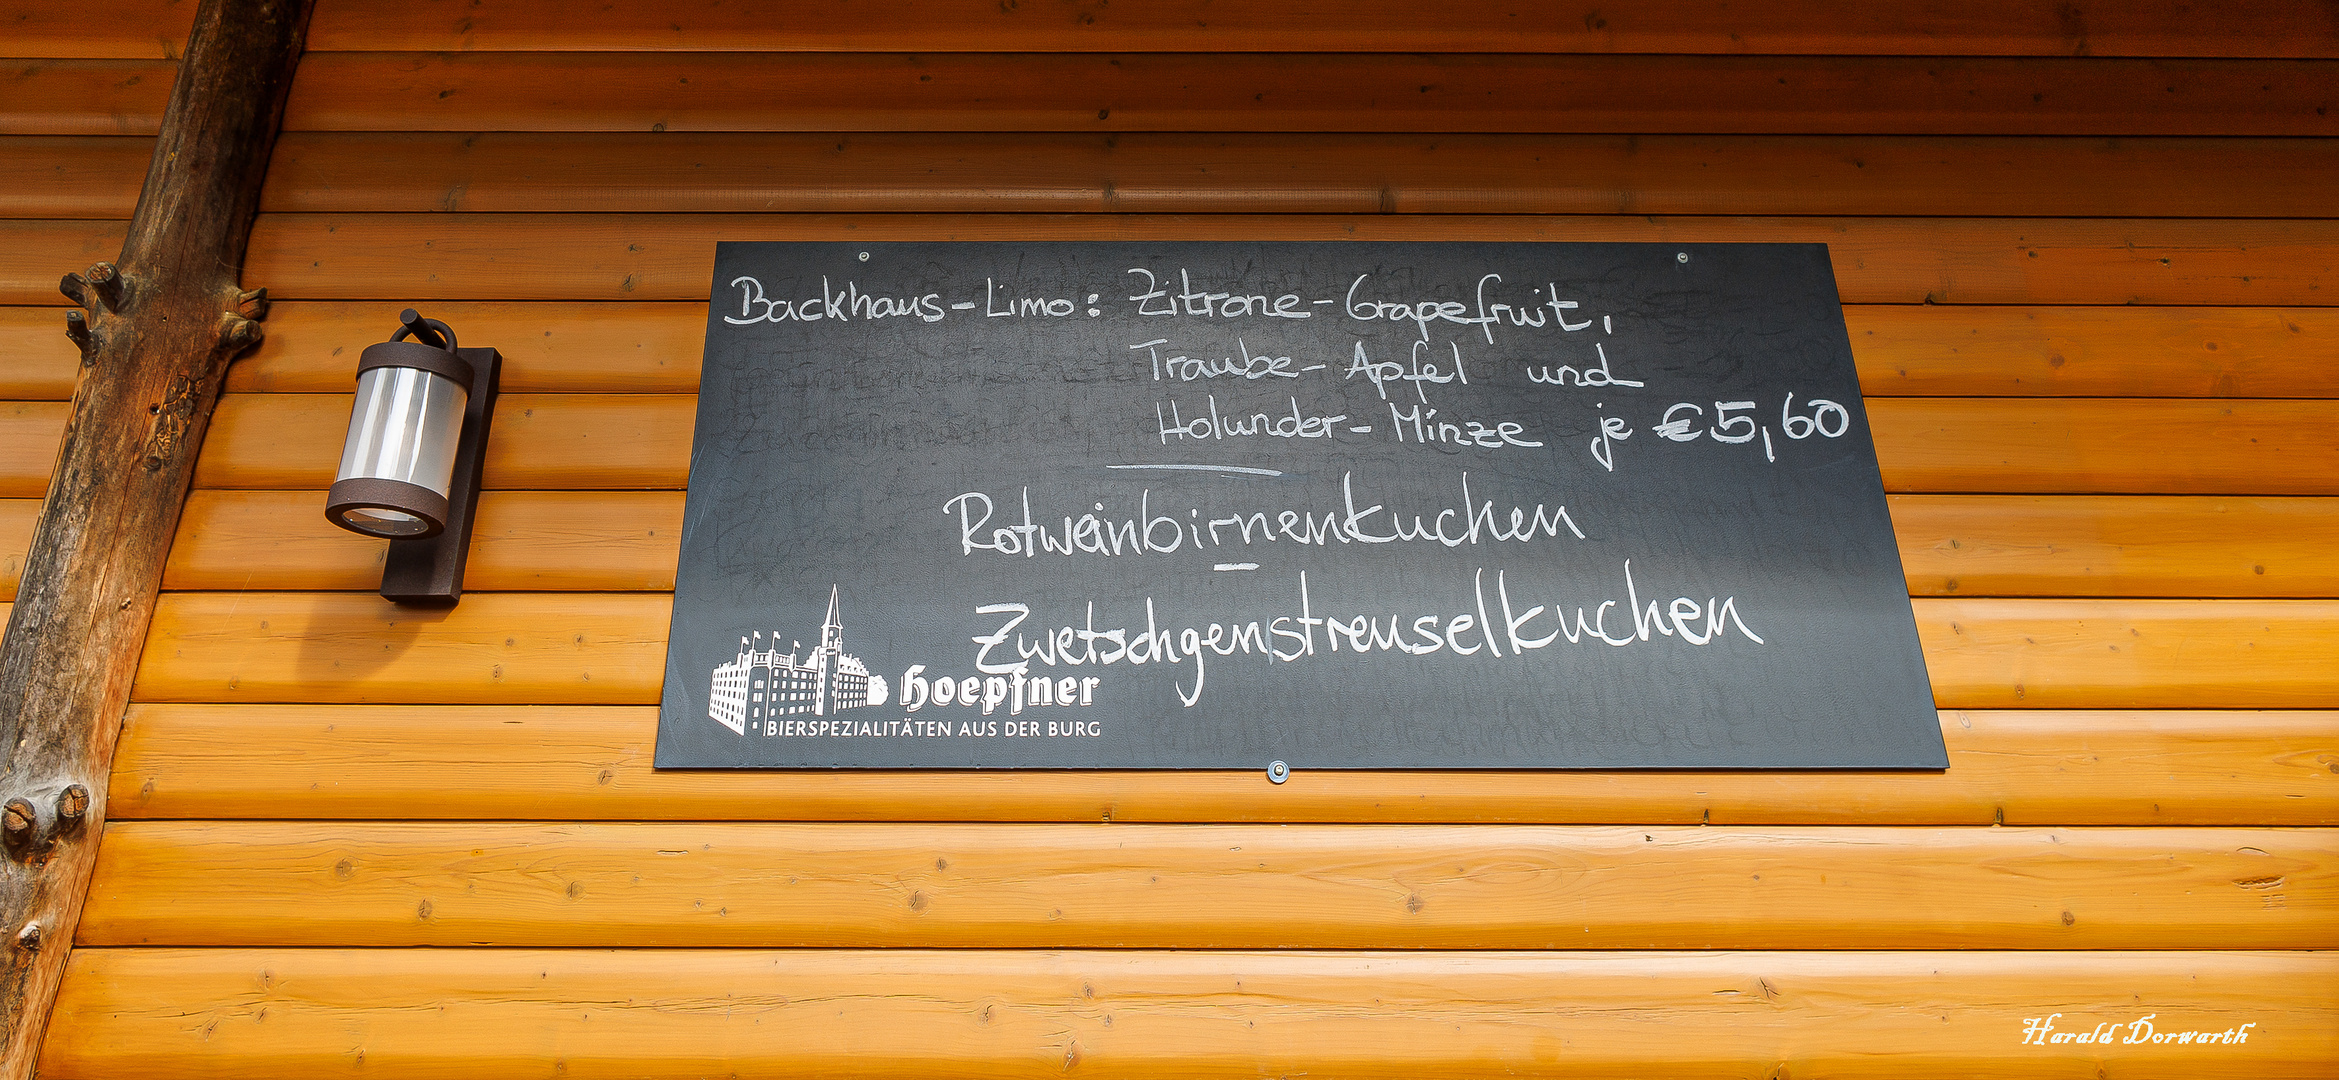 Backhaus-Limo: Zitrone-Grapefruit,
Traube-Apfel und
Holunder-Minze je €5,60
Rotweinbirnenkuchen
Zwetschgenstreuselkuchen
hoepfner
BIERSPEZIALITÄTEN AUS DER BURG
Harald Dorwarth